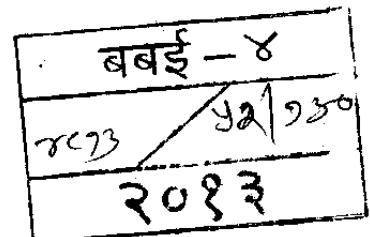 बबई - ४
४८१३ / ५२|१३०
२०१३